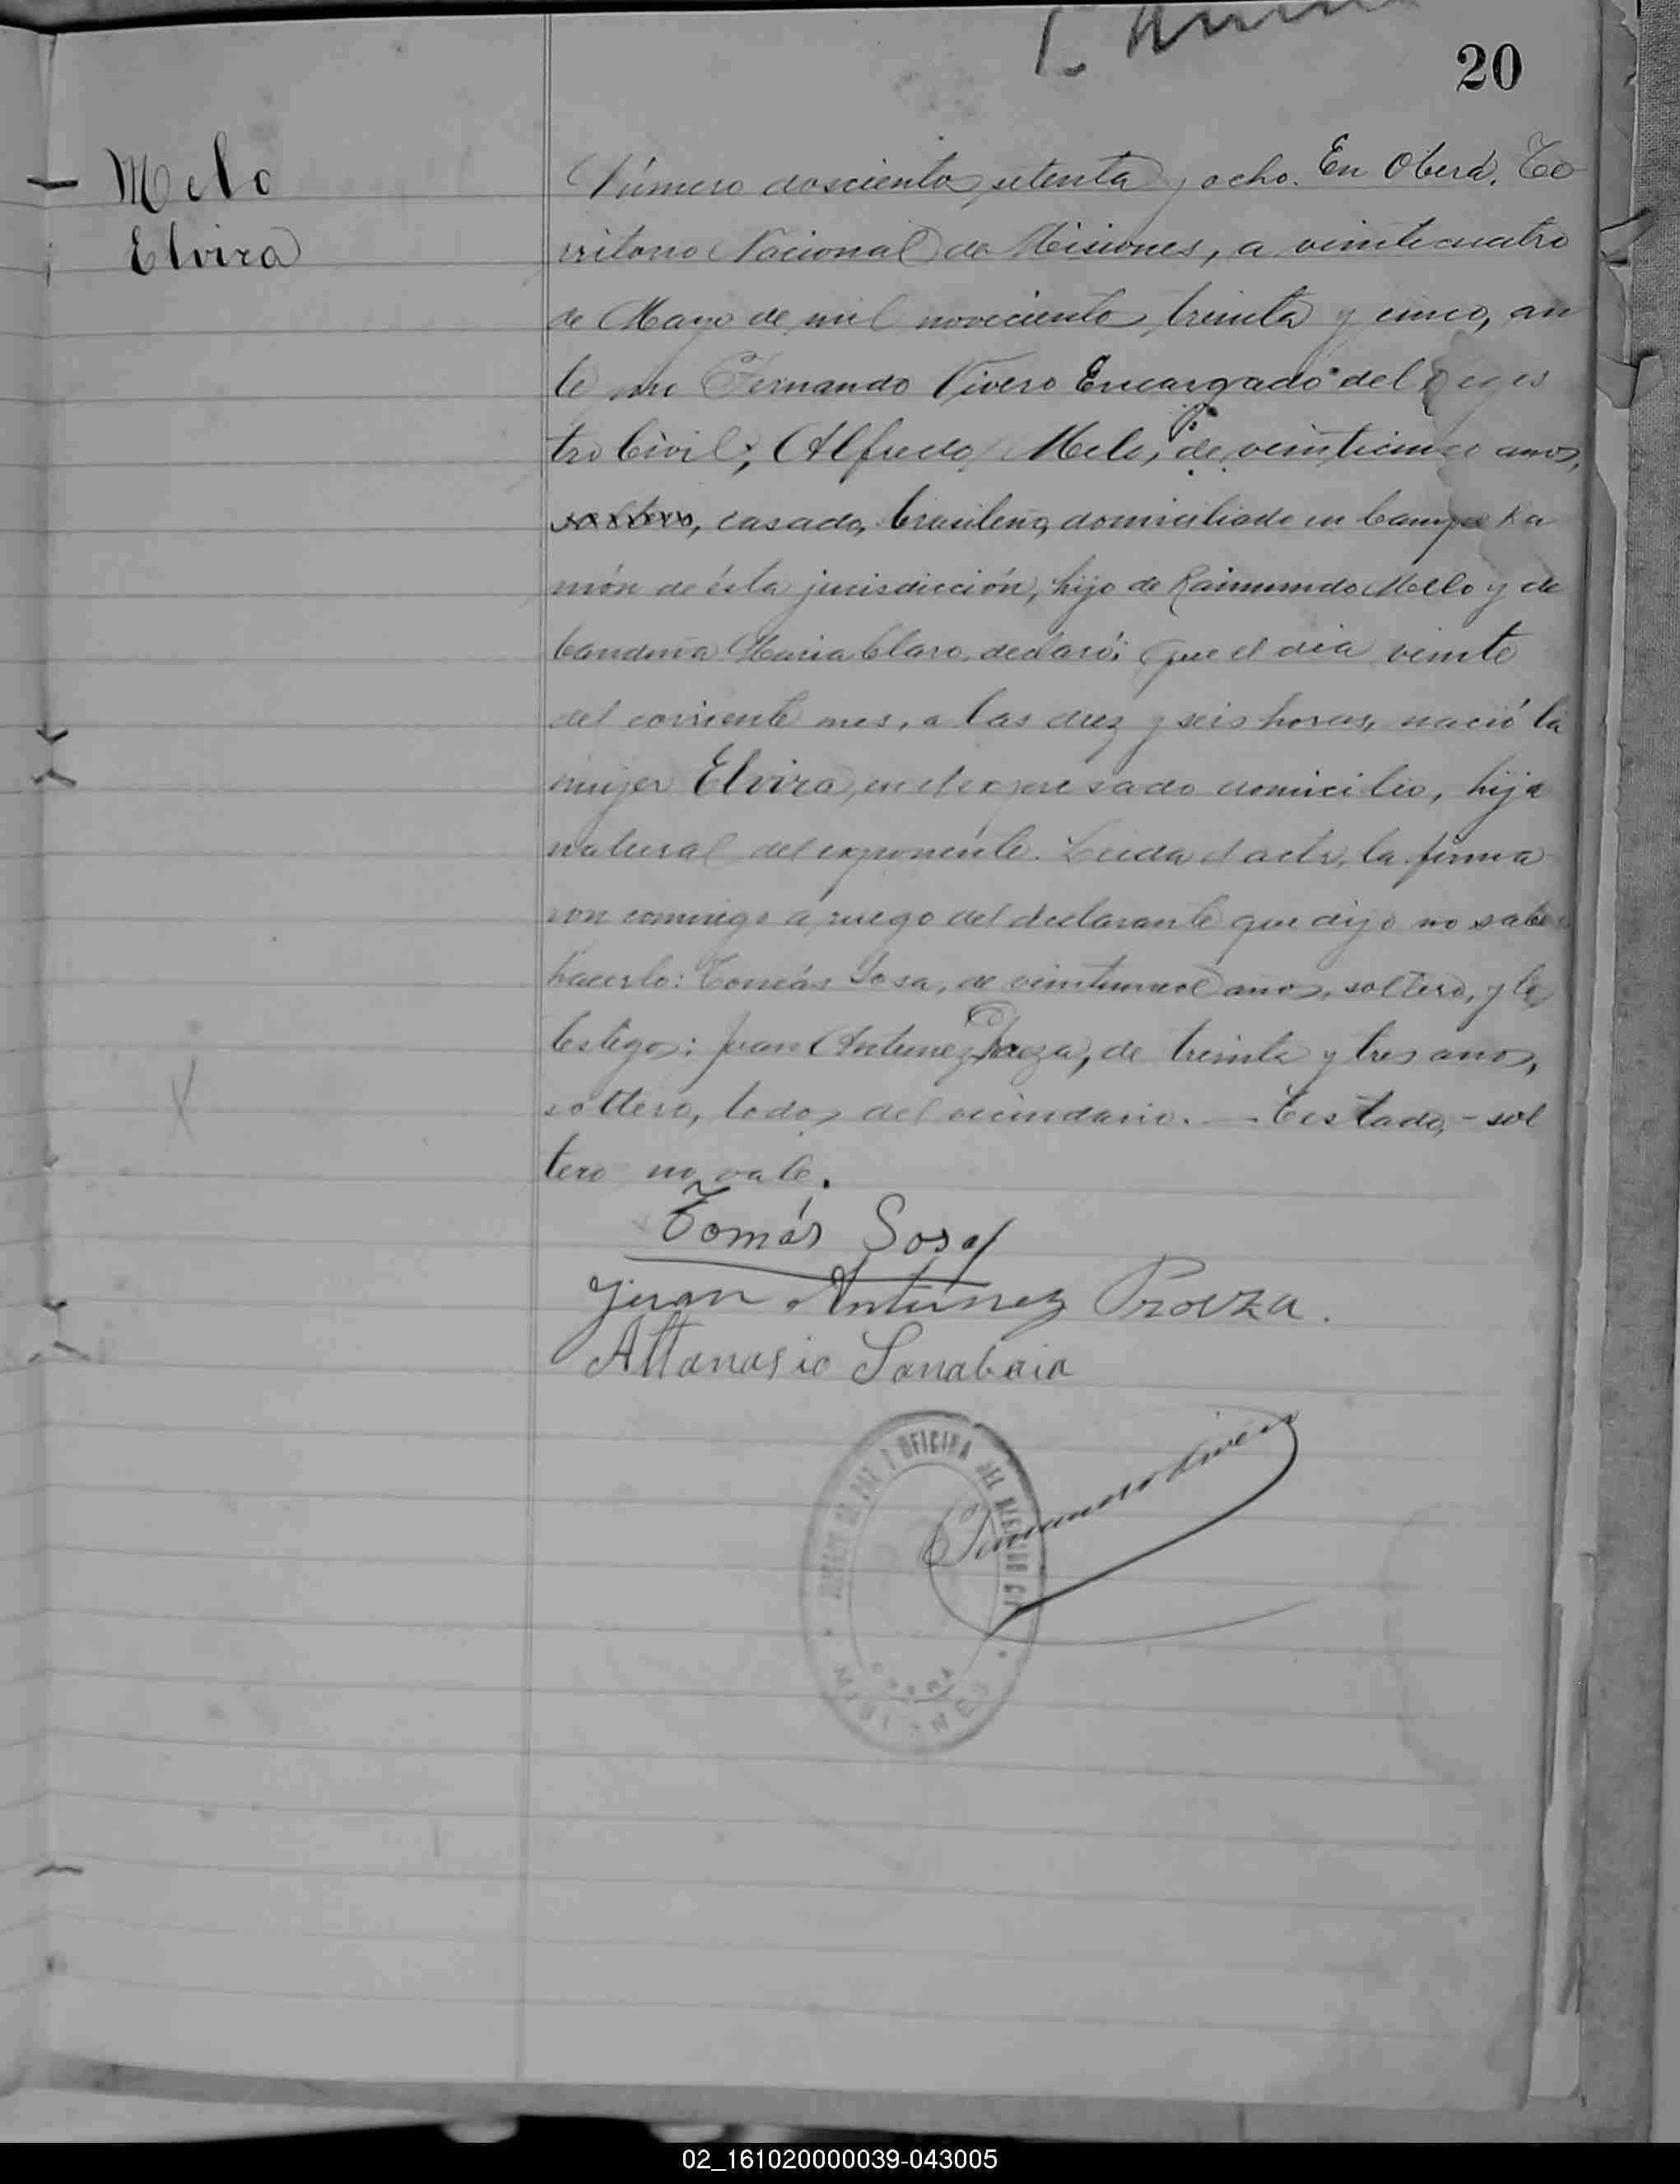 20
Melo
Elvira
Número doscientos setenta y ocho. En Oberá, Te
rritorio Nacional de Misiones, a veinticuatro
de Mayo de mil novecientos treinta y cinco, an
te mi Fernando Vivero Encargado del Regis
tro Civil; Alfredo Melo, de veinticinco anos,
soltero, casado, brasileno, domiciliado en Campo Ra
món de ésta jurisdicción, hijo de Raimundo Mello y de
Maria Claro, declaró: Que el dia veinte
del corriente mes, a las diez y seis horas, nació la
mujer Elvira, en el expresado domicilio, hija
natural del exponente. Leida el acta, la firma
ron conmigo a ruego del declarante que dijo no saber
hacerlo: Tomás Sosa, de años, soltero, y los
testigos: Juan Antunez, de treinta y tres anos,
soltero, todos del vecindario. — Testado, - sol
tero no vale.
Tomás Sosa
Juan Antunez
Attanasio Sanabria
Fernando Vivero
JUZGADO DE PAZ Y OFICINA DEL REGISTRO CIVIL
OBERA
MISIONES
02_161020000039-043005